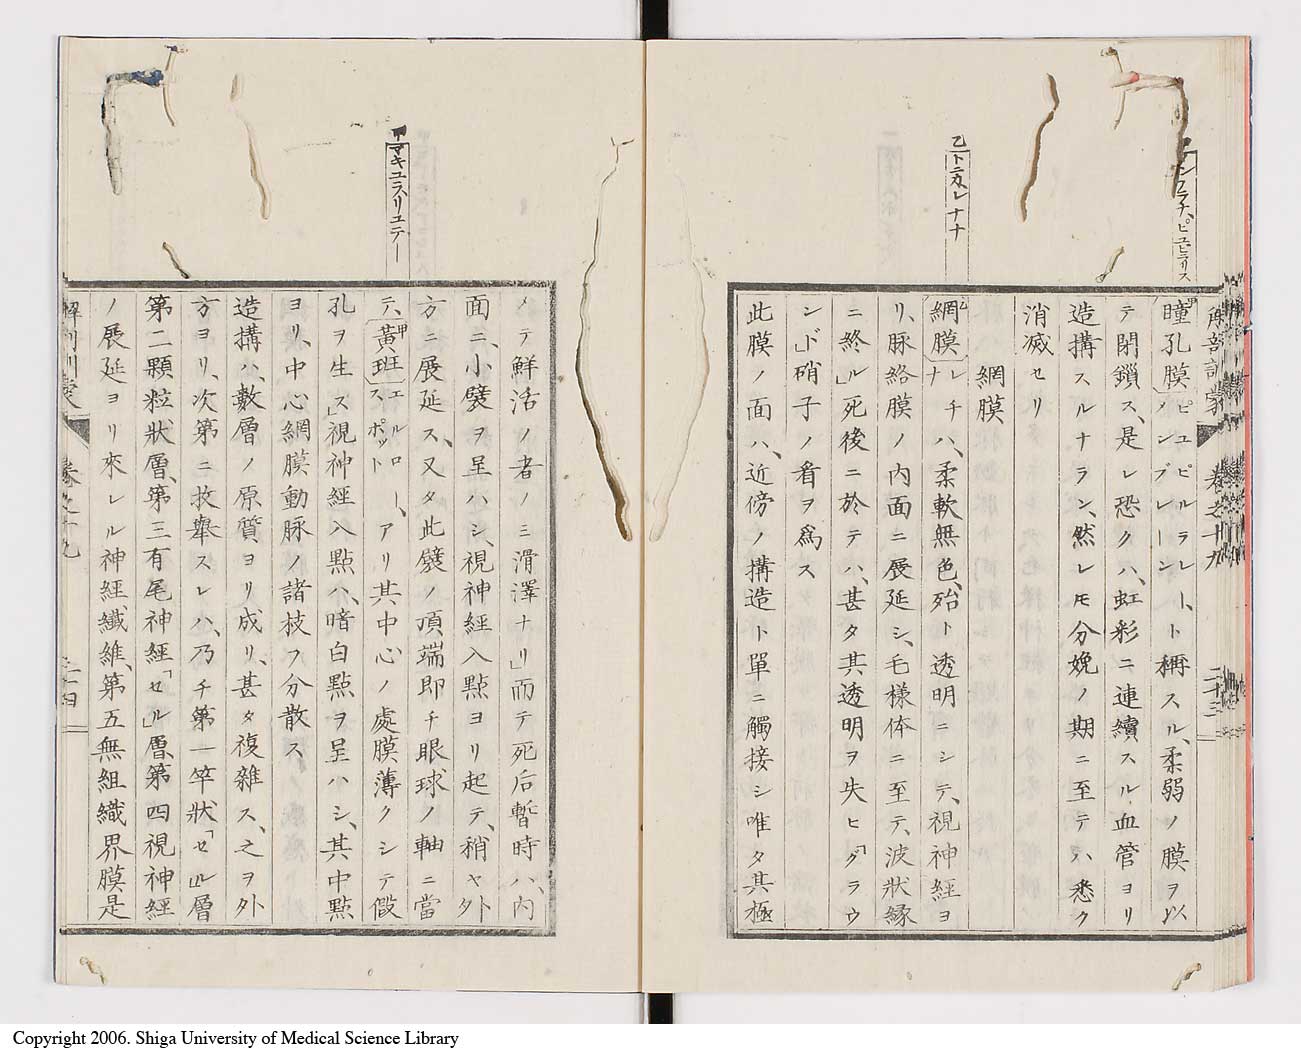 瞳孔膜ピユピルラレー、メンブレーン、ト稱スル、柔弱ノ膜ヲ以
テ閉鎖ス、是レ恐クハ、虹彩ニ連續スル血管ヨリ
造搆スルナラン、然レ𪜈分娩ノ期ニ至テハ悉ク
消滅セリ
網膜
網膜レチナハ、柔軟無色、殆ト透明ニシテ、視神經ヨ
リ、脉絡膜ノ内面ニ展延シ、毛樣体ニ至テ、波狀縁
ニ終ル」死後ニ於テハ、甚タ其透明ヲ失ヒ「グラウ
ンド」硝子ノ看ヲ爲ス
此膜ノ面ハ、近傍ノ搆造ト單ニ觸接シ唯タ其極
乙
甲
マキユラスリユテー
解剖訓蒙
卷之十九
二十三
メテ鮮活ノ者ノミ滑澤ナリ」而テ死后暫時ハ、内
面ニ、小襞ヲ呈ハシ、視神經入點ヨリ起テ、稍ヤ外
方ニ展延ス、又タ此襞ノ頂端即チ眼球ノ軸ニ當
テ、黃斑エルロー、スポットアリ其中心ノ處膜薄クシテ假
孔ヲ生ス」視神經入點ハ、暗白點ヲ呈ハシ、其中點
ヨリ、中心網膜動脉ノ諸枝ヲ分散ス、
造搆ハ、數層ノ原質ヨリ成リ、甚タ複雜ス、之ヲ外
方ヨリ、次第ニ枚擧スレハ、乃チ第一竿狀「セル」層
第二顆粒狀層、第三有尾神經「セル」層第四視神經
ノ展延ヨリ來レル神經纎維、第五無組織界膜是
解剖訓蒙
卷之十九